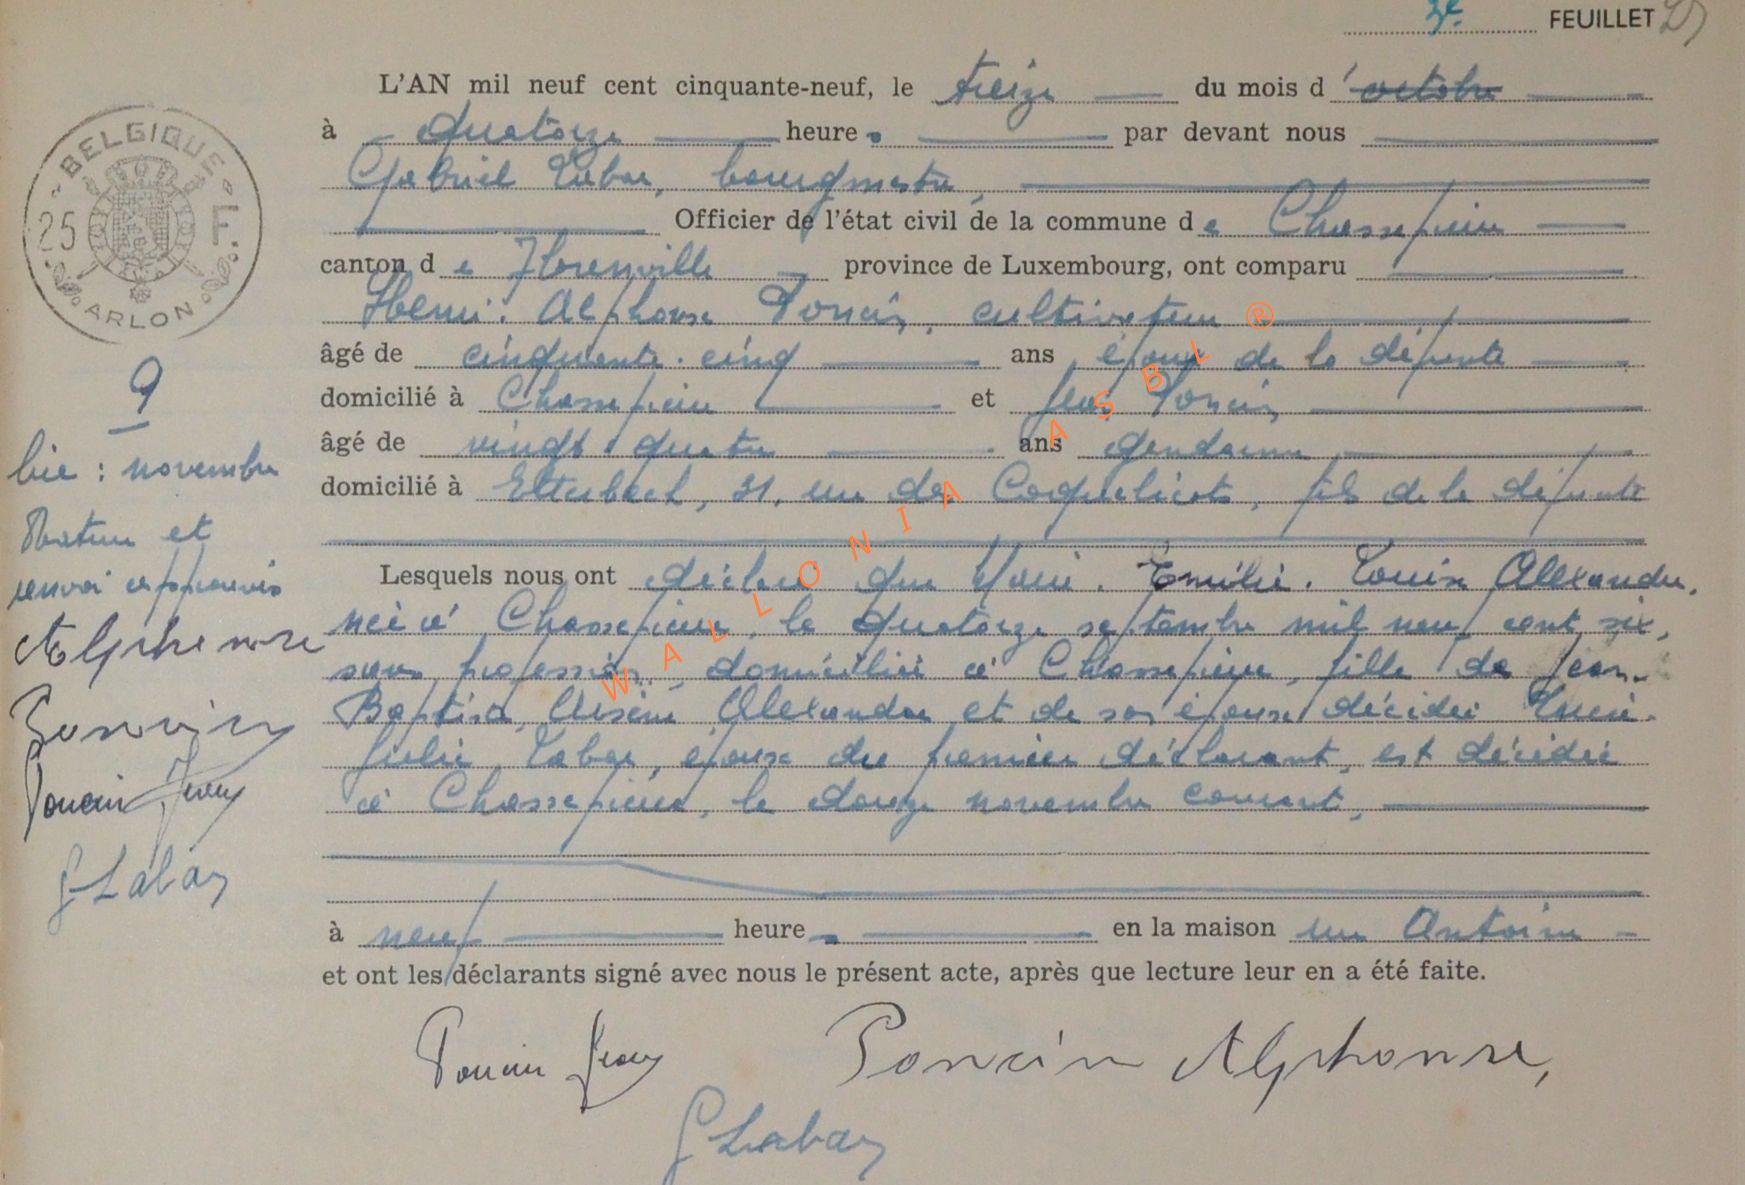 FEUILLET
L'AN mil neuf cent cinquante-neuf, le treize du mois d'octobre
à quatorze heure par devant nous
Gabriel Labar, bourgmestre,
Officier de l'état civil de la commune de Chassepierre
canton de Florenville province de Luxembourg, ont comparu
Henri. Alphonse Poncin, cultivateur
âgé de cinquante-cinq ans époux de la défunte
domicilié à Chassepierre et Jean Poncin,
âgé de vingt-quatre ans gendarme
domicilié à Etterbeek, 31, rue des Coquelicots, fils de la défunte
Lesquels nous ont déclaré que Marie. Emilie. Louise Alexandre,
née à Chassepierre, le quatorze septembre mil neuf cent six,
sans profession, domiciliée à Chassepierre, fille de Jean-
Baptiste, Arsène Alexandre et de son épouse décédée Lucie.
Julie Labar, épouse du premier déclarant, est décédée
à Chassepierre, le douze novembre courant,
à neuf heure en la maison rue Antoine
et ont les déclarants signé avec nous le présent acte, après que lecture leur en a été faite.
Poncin Jean Poncin Alphonse,
G Labar
BELGIQUE
25 F.
ARLON
9
lire : novembre
Rature et
renvoi approuvés
Alphonse
Poncin
Poncin Jean
G Labar
WALLONIA ASBL ®